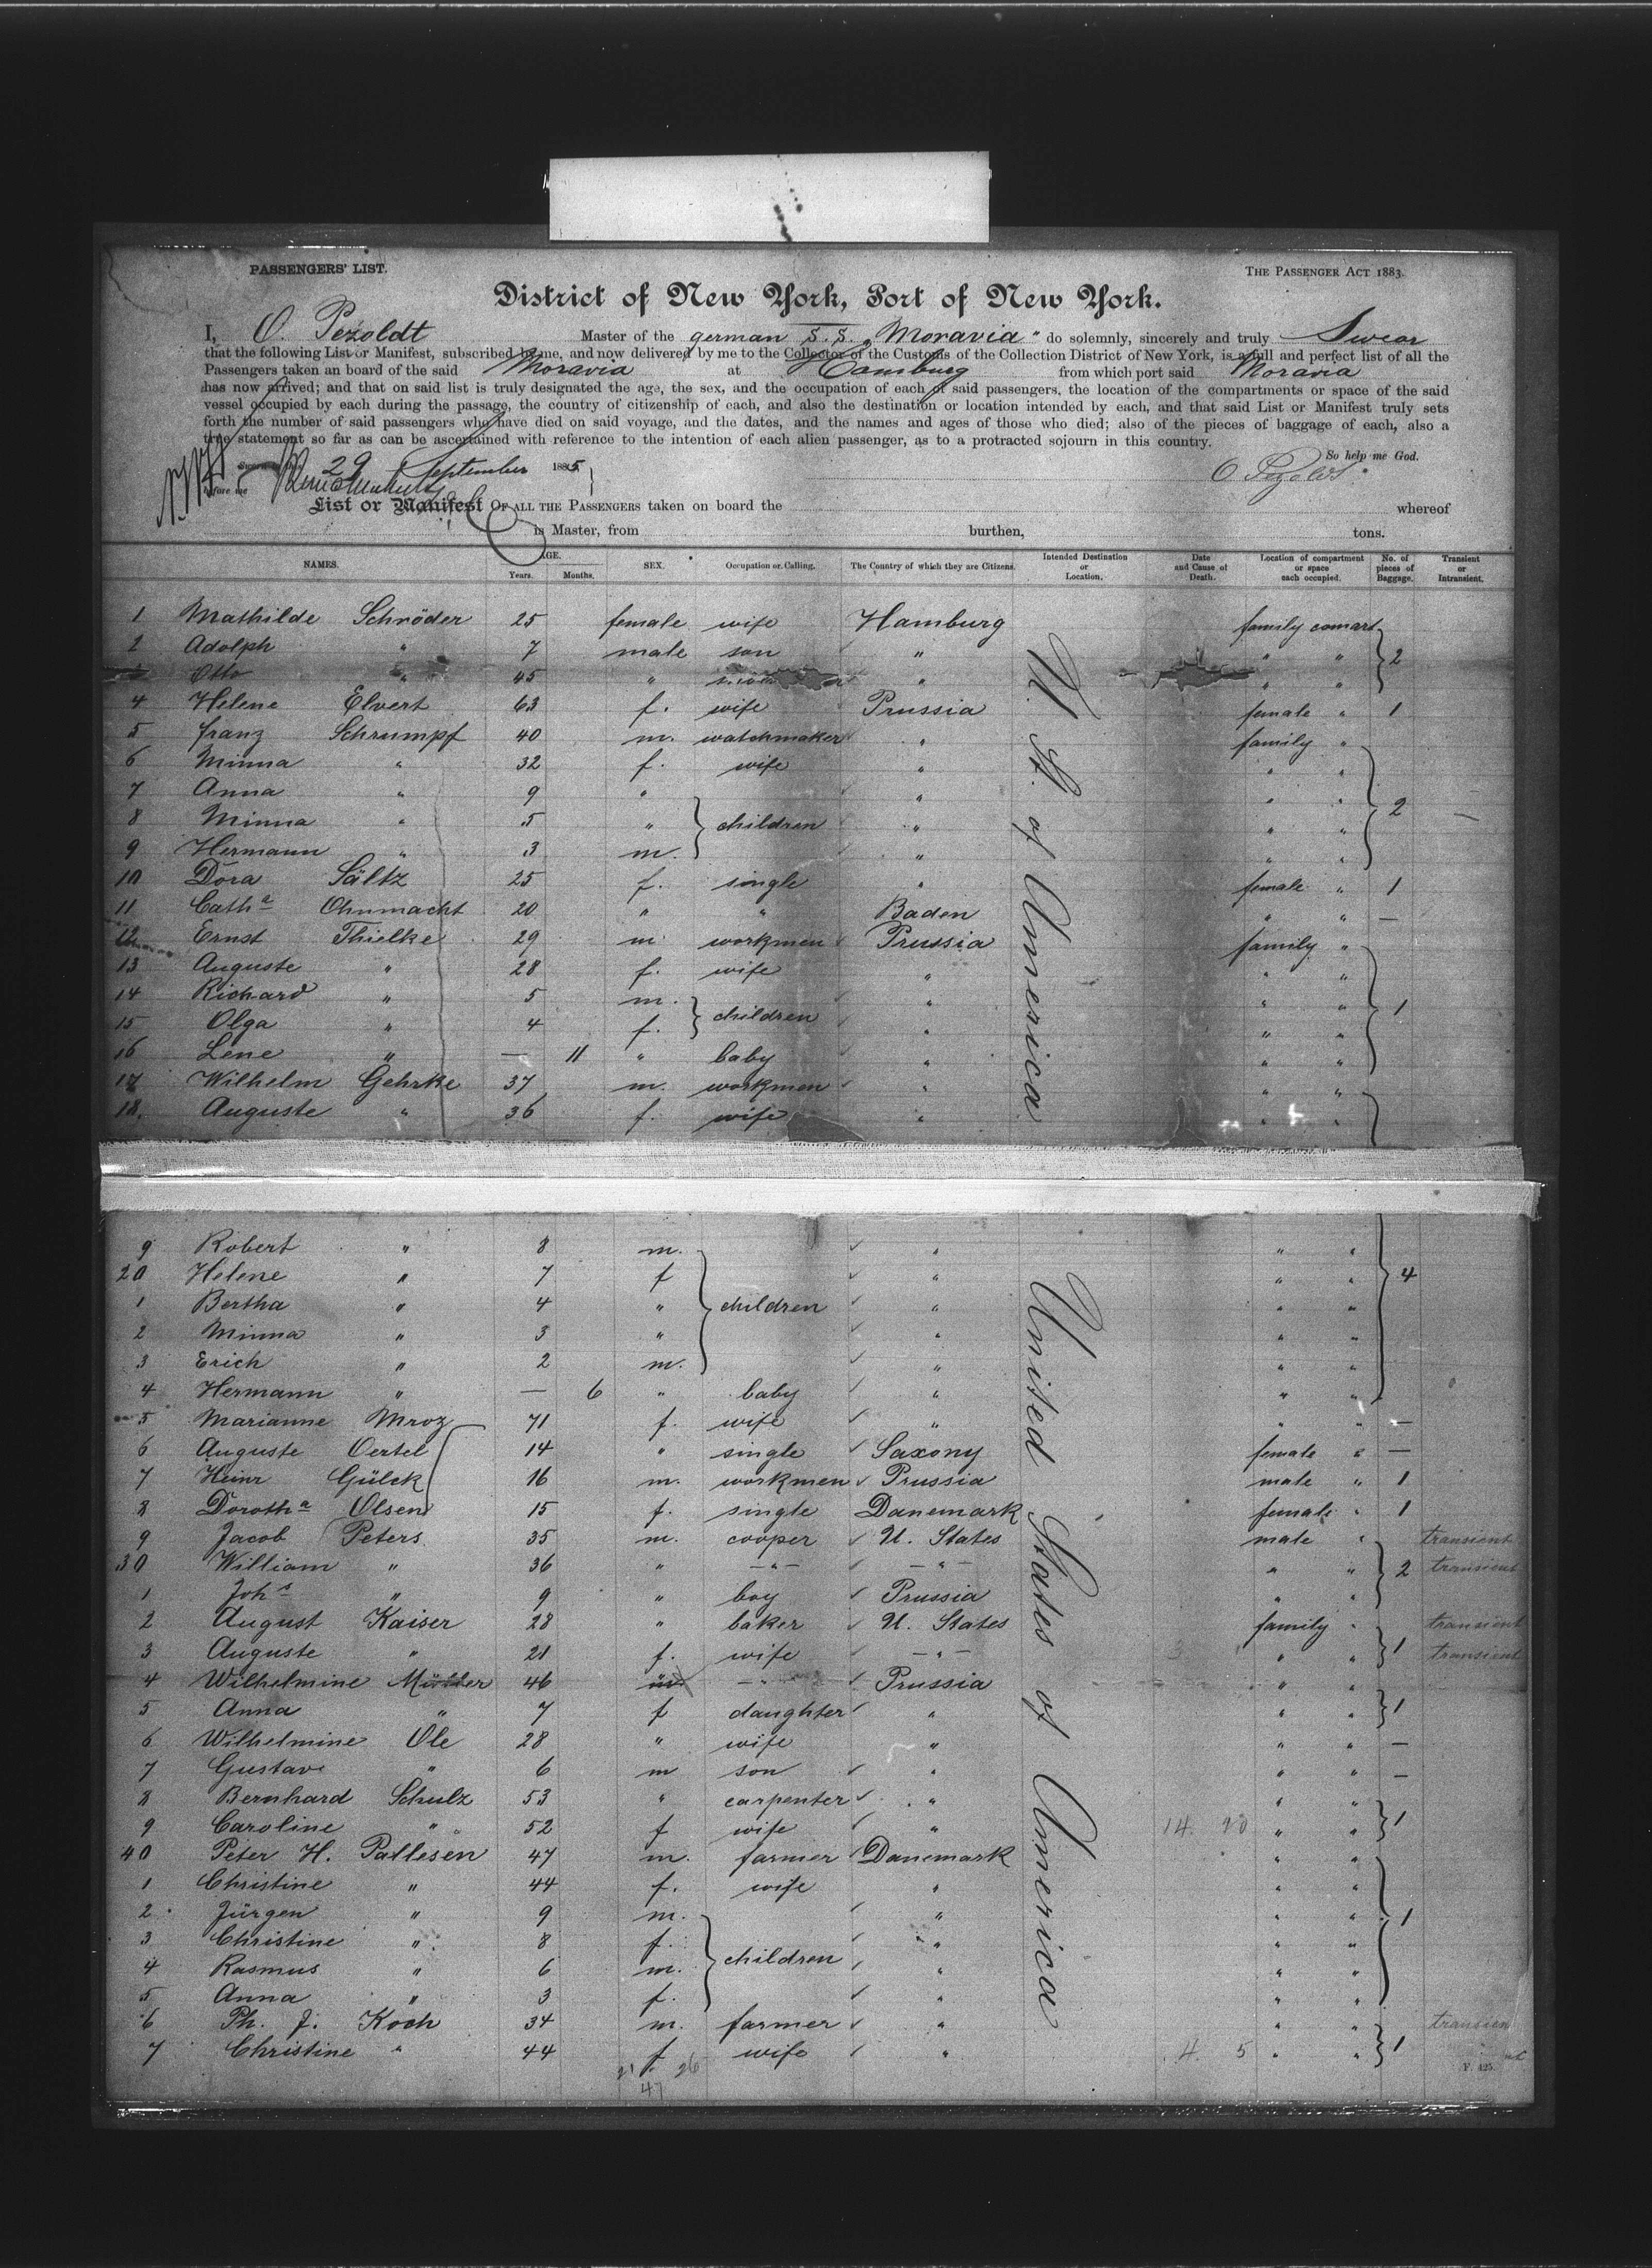 PASSENGERS' LIST.
THE PASSENGER ACT 1883.
District of New York, Port of New York.
I, O. Pezoldt Master of the german S. S. "Moravia" do solemnly, sincerely and truly Swear
that the following List or Manifest, subscribed by me, and now delivered by me to the Collector of the Customs of the Collection District of New York, is a full and perfect list of all the
Passengers taken an board of the said Moravia at Hamburg from which port said Moravia
has now arrived; and that on said list is truly designated the age, the sex, and the occupation of each of said passengers, the location of the compartments or space of the said
vessel occupied by each during the passage, the country of citizenship of each, and also the destination or location intended by each, and that said List or Manifest truly sets
forth the number of said passengers who have died on said voyage, and the dates, and the names and ages of those who died; also of the pieces of baggage of each, also a
true statement so far as can be ascertained with reference to the intention of each alien passenger, as to a protracted sojourn in this country.
So help me God.
29 September 1885
before me
O Pezoldt
List or Manifest OF ALL THE PASSENGERS taken on board the whereof
is Master, from burthen, tons.
NAMES. AGE. Years. Months. SEX. Occupation or Calling. The Country of which they are Citizens. Intended Destination or Location. Date and Cause of Death. Location of compartment or space each occupied. No. of pieces of Baggage. Transient or Intransient.
U. St. of America
1 Mathilde Schröder 25 female wife Hamburg family comart
2 Adolph " 7 male son " " " 2
Otto " 45 " " " "
4 Helene Elvert 63 f. wife Prussia female " 1
5 Franz Schrumpf 40 m. watchmaker " family "
6 Minna " 32 f. wife " " "
7 Anna " 9 " " " "
8 Minna " 5 " children " " " 2 —
9 Hermann " 3 m. " " "
10 Dora Sältz 25 f. single " female " 1
11 Cath a Ohnmacht 20 " " Baden " " —
12 Ernst Thielke 29 m. workmen Prussia family "
13 Auguste " 28 f. wife " " "
14 Richard " 5 m. " " "
15 Olga " 4 f. children " " " 1
16 Lene " — 11 " baby " " "
17 Wilhelm Gehrke 37 m. workmen " " "
18. Auguste " 36 f. wife " " "
United States of America
9 Robert " 8 m. " " "
20 Helene " 7 f " " " 4
1 Bertha " 4 " children " " "
2 Minna " 3 " " " "
3 Erich " 2 m. " " "
4 Hermann " — 6 " baby " " "
5 Marianne Mroz 71 f. wife " " " —
6 Auguste Oertel 14 " single Saxony female " —
7 Heinr Gülck 16 m. workmen Prussia male " 1
8 Doroth a Olsen 15 f. single Danemark female " 1
9 Jacob Peters 35 m. cooper U. States male " transient
30 William " 36 " -"- -"- " " 2 transient
1 Joh s " 9 " boy Prussia " "
2 August Kaiser 28 " baker U. States family " transient
3 Auguste " 21 f. wife -"- 3 " " 1 transient
4 Wilhelmine Müller 46 m -"- Prussia " "
5 Anna " 7 f daughter " " " 1
6 Wilhelmine Ole 28 " wife " " " —
7 Gustav " 6 m son " " " —
8 Bernhard Schulz 53 " carpenter " " "
9 Caroline " 52 f wife " 14. 20 " " 1
40 Peter H. Pallesen 47 m. farmer Danemark " "
1 Christine " 44 f. wife " " "
2 Jürgen " 9 m. " " " 1
3 Christine " 8 f. " " "
4 Rasmus " 6 m. children " " "
5 Anna " 3 f. " " "
6 Ph. J. Koch 34 m. farmer " " " transient
7 Christine " 44 f wife " 4. 5 " " 1
21 26
47
F. 425.